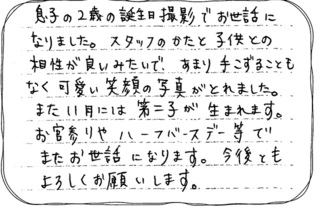 息子の2歳の誕生日撮影でお世話に
なりました。スタッフのかたと子供との
相性が良いみたいで、あまり手こずることも
なく可愛い笑顔の写真がとれました。
また11月には第二子が生まれます。
お宮参りやハーフバースデー等で
またお世話になります。今後とも
よろしくお願いします。